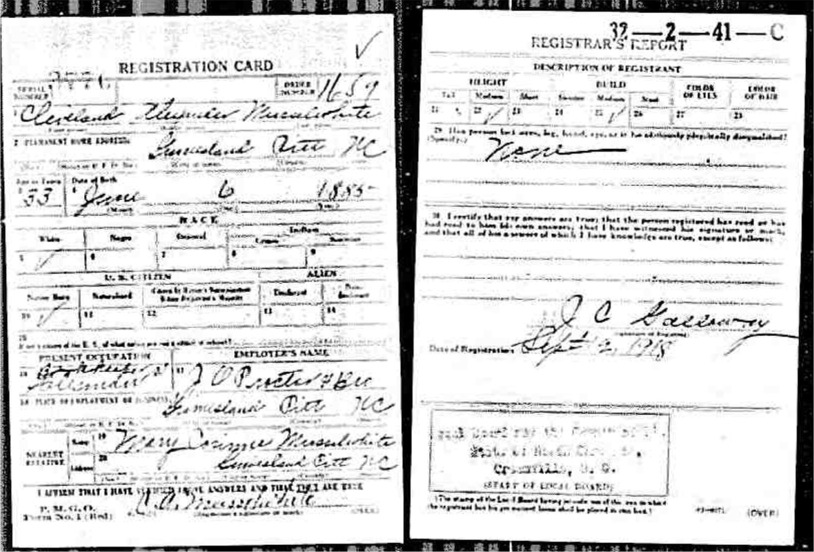 REGISTRATION CARD
SERIAL NUMBER
ORDER NUMBER 1659
1 Cleveland Musselwhite
2 PERMANENT HOME ADDRESS:
Grimesland Pitt NC
Age in Years Date of Birth
33 June 6 1885
(Month) (Day) (Year)
RACE
White Negro Oriental Indian
Citizen Noncitizen
5 ✓ 6 7 8 9
U. S. CITIZEN ALIEN
Native Born Naturalized Declarant Non-declarant
10 ✓ 11 12 13 14
15
If not a citizen of the U. S., of what nation are you a citizen or subject?
PRESENT OCCUPATION EMPLOYER'S NAME
16 Salesman 17 J O Proctor & Bro
18 PLACE OF EMPLOYMENT OR BUSINESS
Grimesland Pitt NC
NEAREST RELATIVE
Name 19 Mary Musselwhite
Address 20 Grimesland Pitt NC
I AFFIRM THAT I HAVE VERIFIED ABOVE ANSWERS AND THAT THEY ARE TRUE
P. M. G. O.
Form No. 1 (Red) C. A. Musselwhite
(Registrant's signature or mark) (OVER)
32—2—41—C
REGISTRAR'S REPORT
DESCRIPTION OF REGISTRANT
HEIGHT BUILD COLOR OF EYES COLOR OF HAIR
Tall Medium Short Slender Medium Stout
21 22 ✓ 23 24 25 ✓ 26 27 28
29 Has person lost arm, leg, hand, eye, or is he obviously physically disqualified?
(Specify.) None
30 I certify that my answers are true; that the person registered has read or has
had read to him his own answers; that I have witnessed his signature or mark,
and that all of his answers of which I have knowledge are true, except as follows:
J C Galloway
(Signature of Registrar)
Date of Registration Sept 12, 1918
Local Board for the County of
State of North
Greenville, N. C.
(STAMP OF LOCAL BOARD)
(The stamp of the Local Board having jurisdiction of the area in which
the registrant has his permanent home shall be placed in this box.)
(OVER)